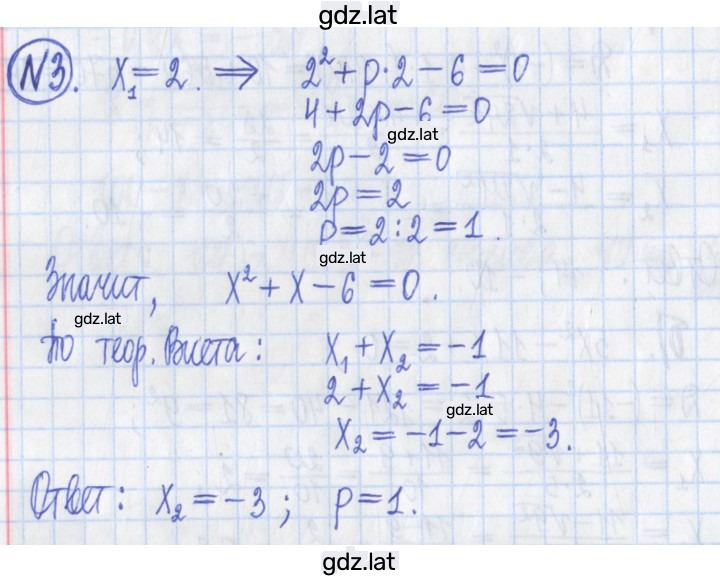 gdz.lat
№3. x₁ = 2. ⇒ 2² + p·2 − 6 = 0
4 + 2p − 6 = 0
gdz.lat
2p − 2 = 0
2p = 2
p = 2 : 2 = 1.
gdz.lat
Значит, x² + x − 6 = 0.
gdz.lat
По теор. Виета: x₁ + x₂ = −1
2 + x₂ = −1
gdz.lat
x₂ = −1 − 2 = −3.
Ответ: x₂ = −3; p = 1.
gdz.lat